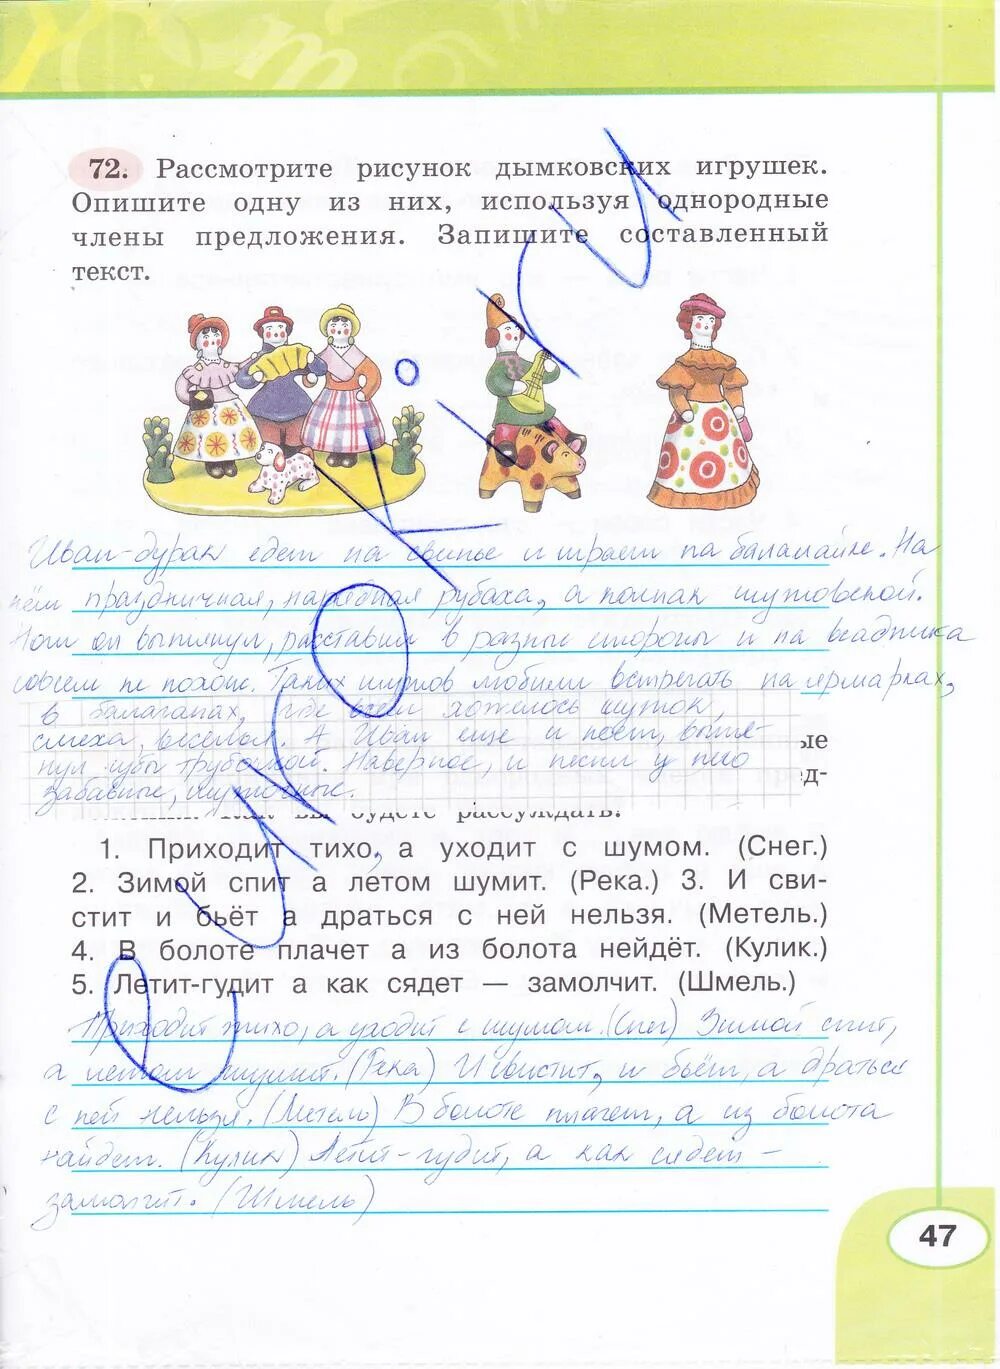 72. Рассмотрите рисунок дымковских игрушек.
Опишите одну из них, используя однородные
члены предложения. Запишите составленный
текст.
Иван-дурак едет на свинье и играет на балалайке. На
нём праздничная, нарядная рубаха, а колпак шутовской.
Ноги он вытянул, расставил в разные стороны и на всадника
совсем не похож. Таких шутов любили встречать на ярмарках,
в балаганах, где всем хотелось шуток,
смеха, веселья. А Иван еще и поёт, вытя-
ые
нул губы трубочкой. Наверное, и песни у него
ед-
забавные, шуточные.
будете рассуждать.
1. Приходит тихо, а уходит с шумом. (Снег.)
2. Зимой спит а летом шумит. (Река.) 3. И сви-
стит и бьёт а драться с ней нельзя. (Метель.)
4. В болоте плачет а из болота нейдёт. (Кулик.)
5. Летит-гудит а как сядет — замолчит. (Шмель.)
Приходит тихо, а уходит с шумом. (Снег) Зимой спит,
а летом шумит. (Река) И свистит, и бьёт, а драться
с ней нельзя. (Метель) В болоте плачет, а из болота
найдет. (Кулик) Летит-гудит, а как сядет -
замолчит. (Шмель)
47
с уроки